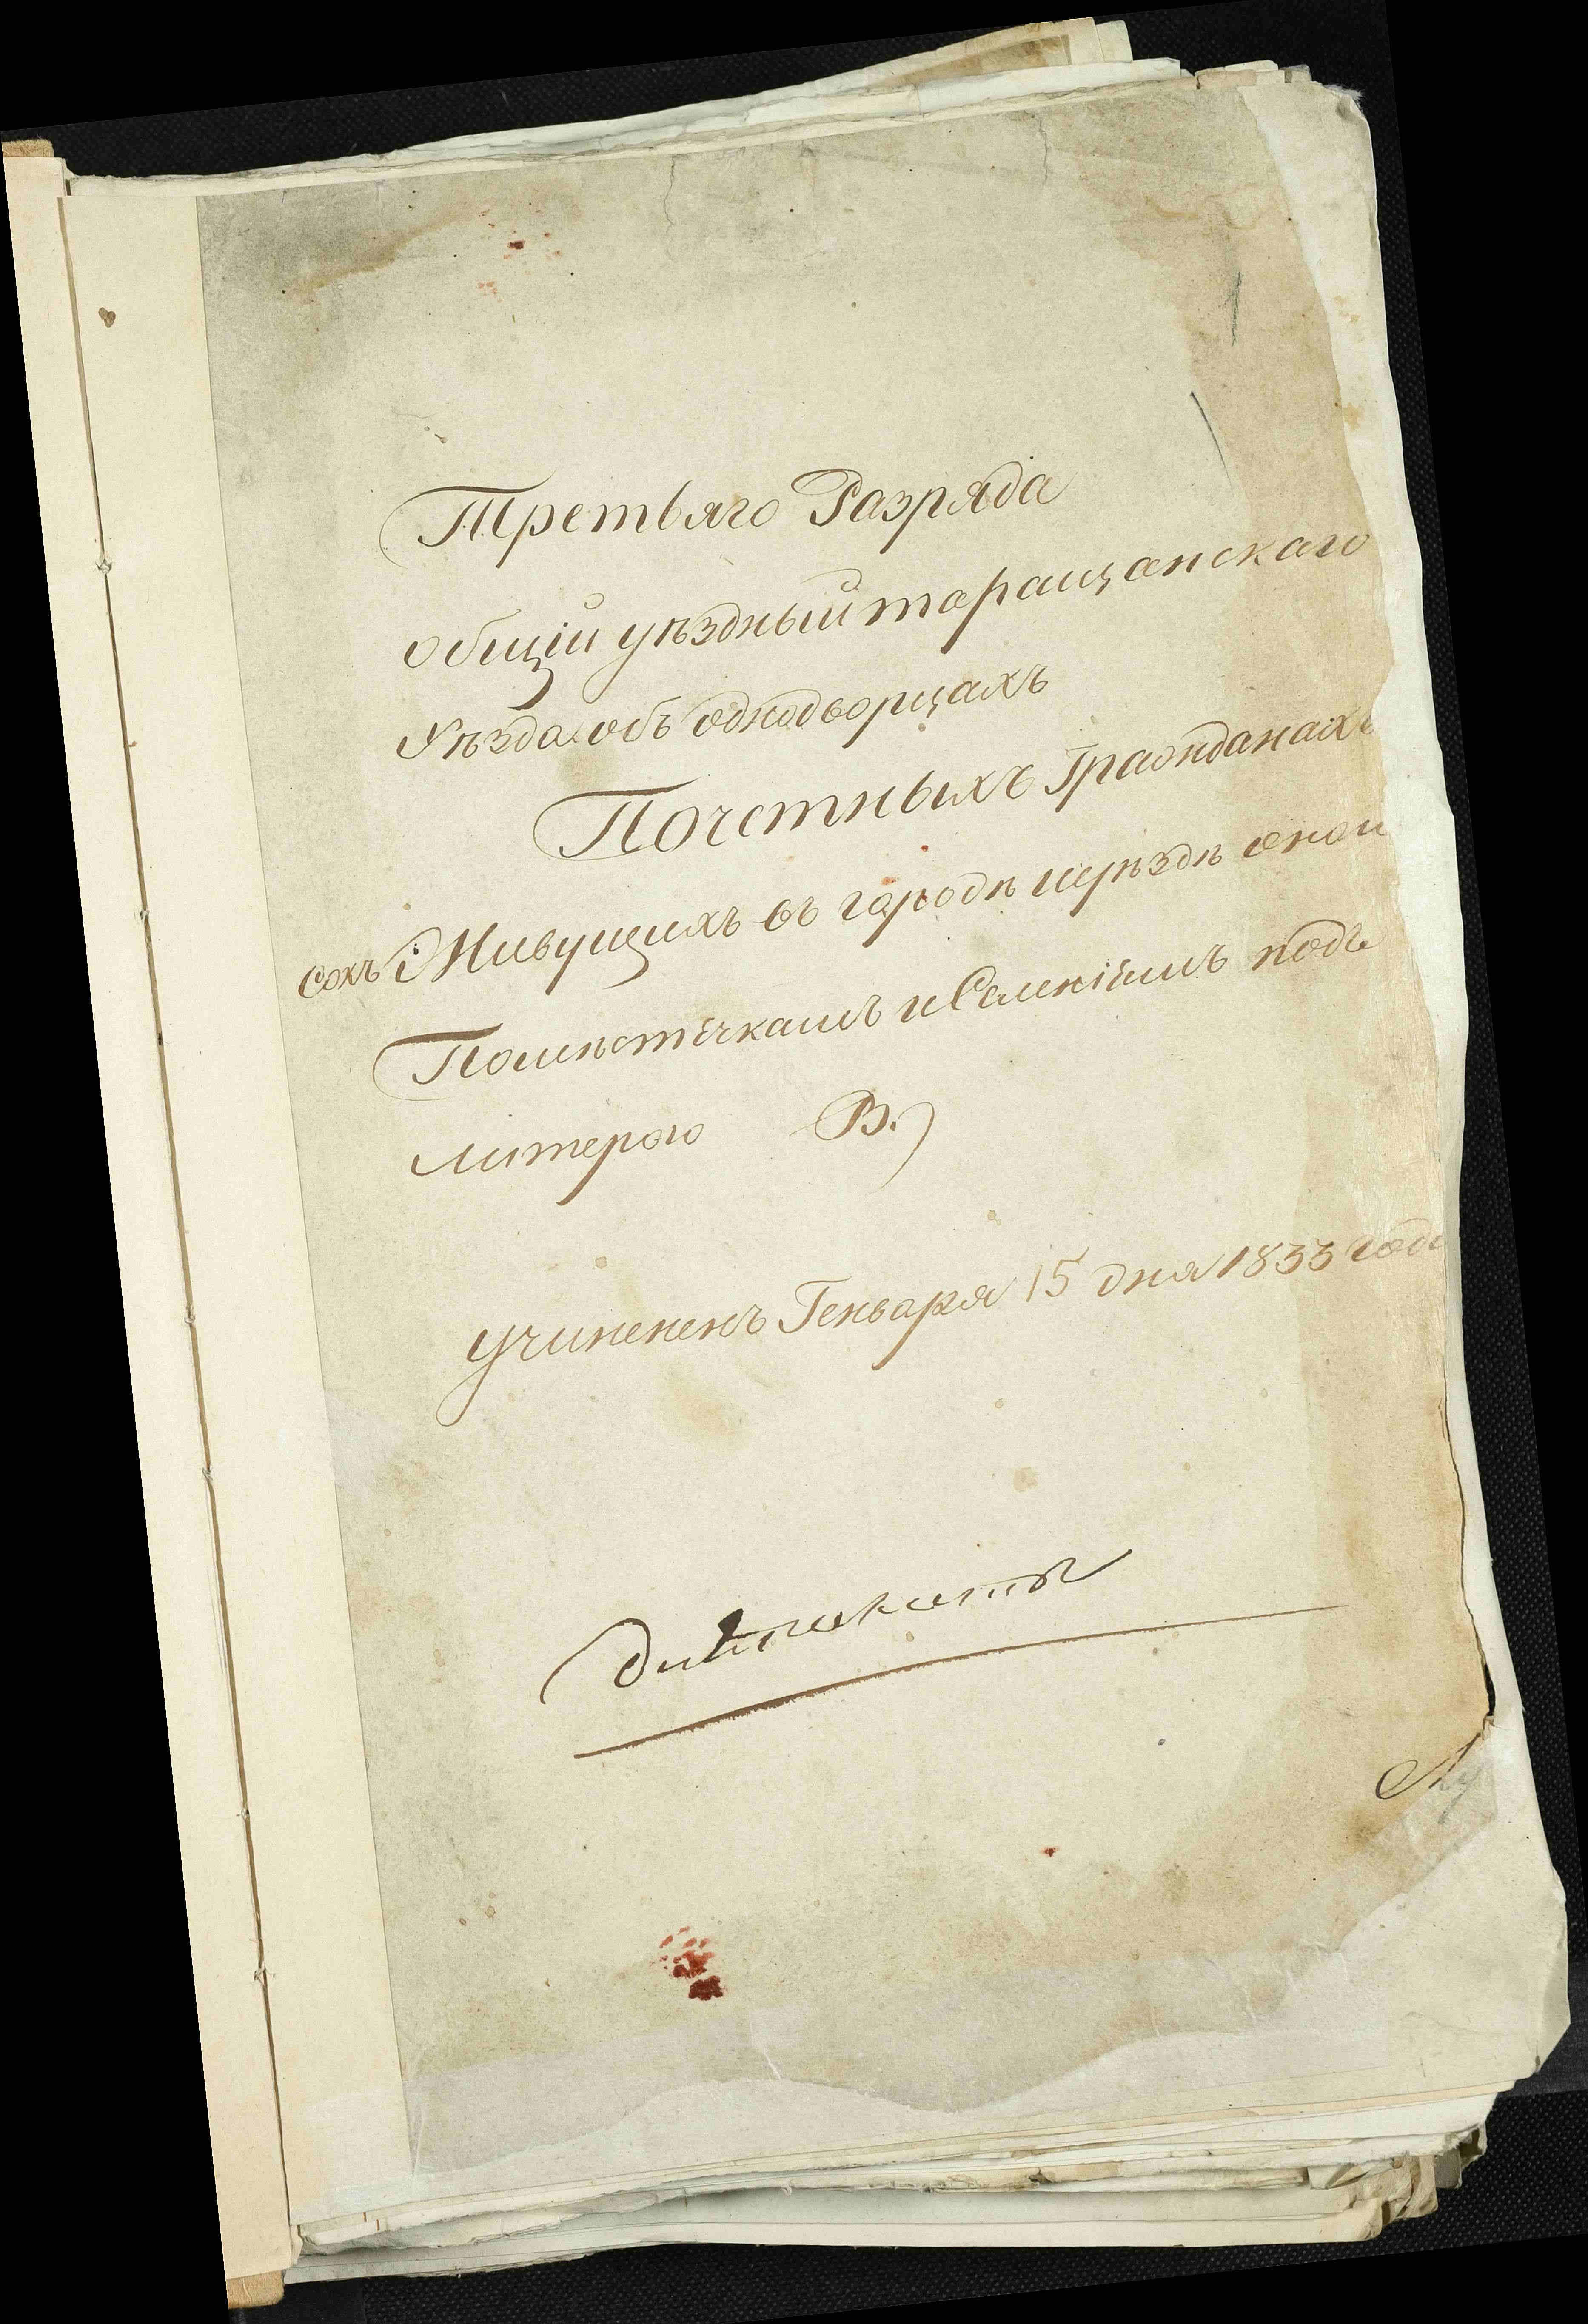 1
Третьяго Разряда
общій уѣздный таращанскаго
Уѣзда объ однодворцахъ
Почетныхъ Гражданахъ
Живущихъ въ городѣ иуѣздѣ оном
Помѣстечкамъ иСеленіямъ подъ
литерою В.
учиненъ Генваря 15 дня 1833 года
дубликатъ